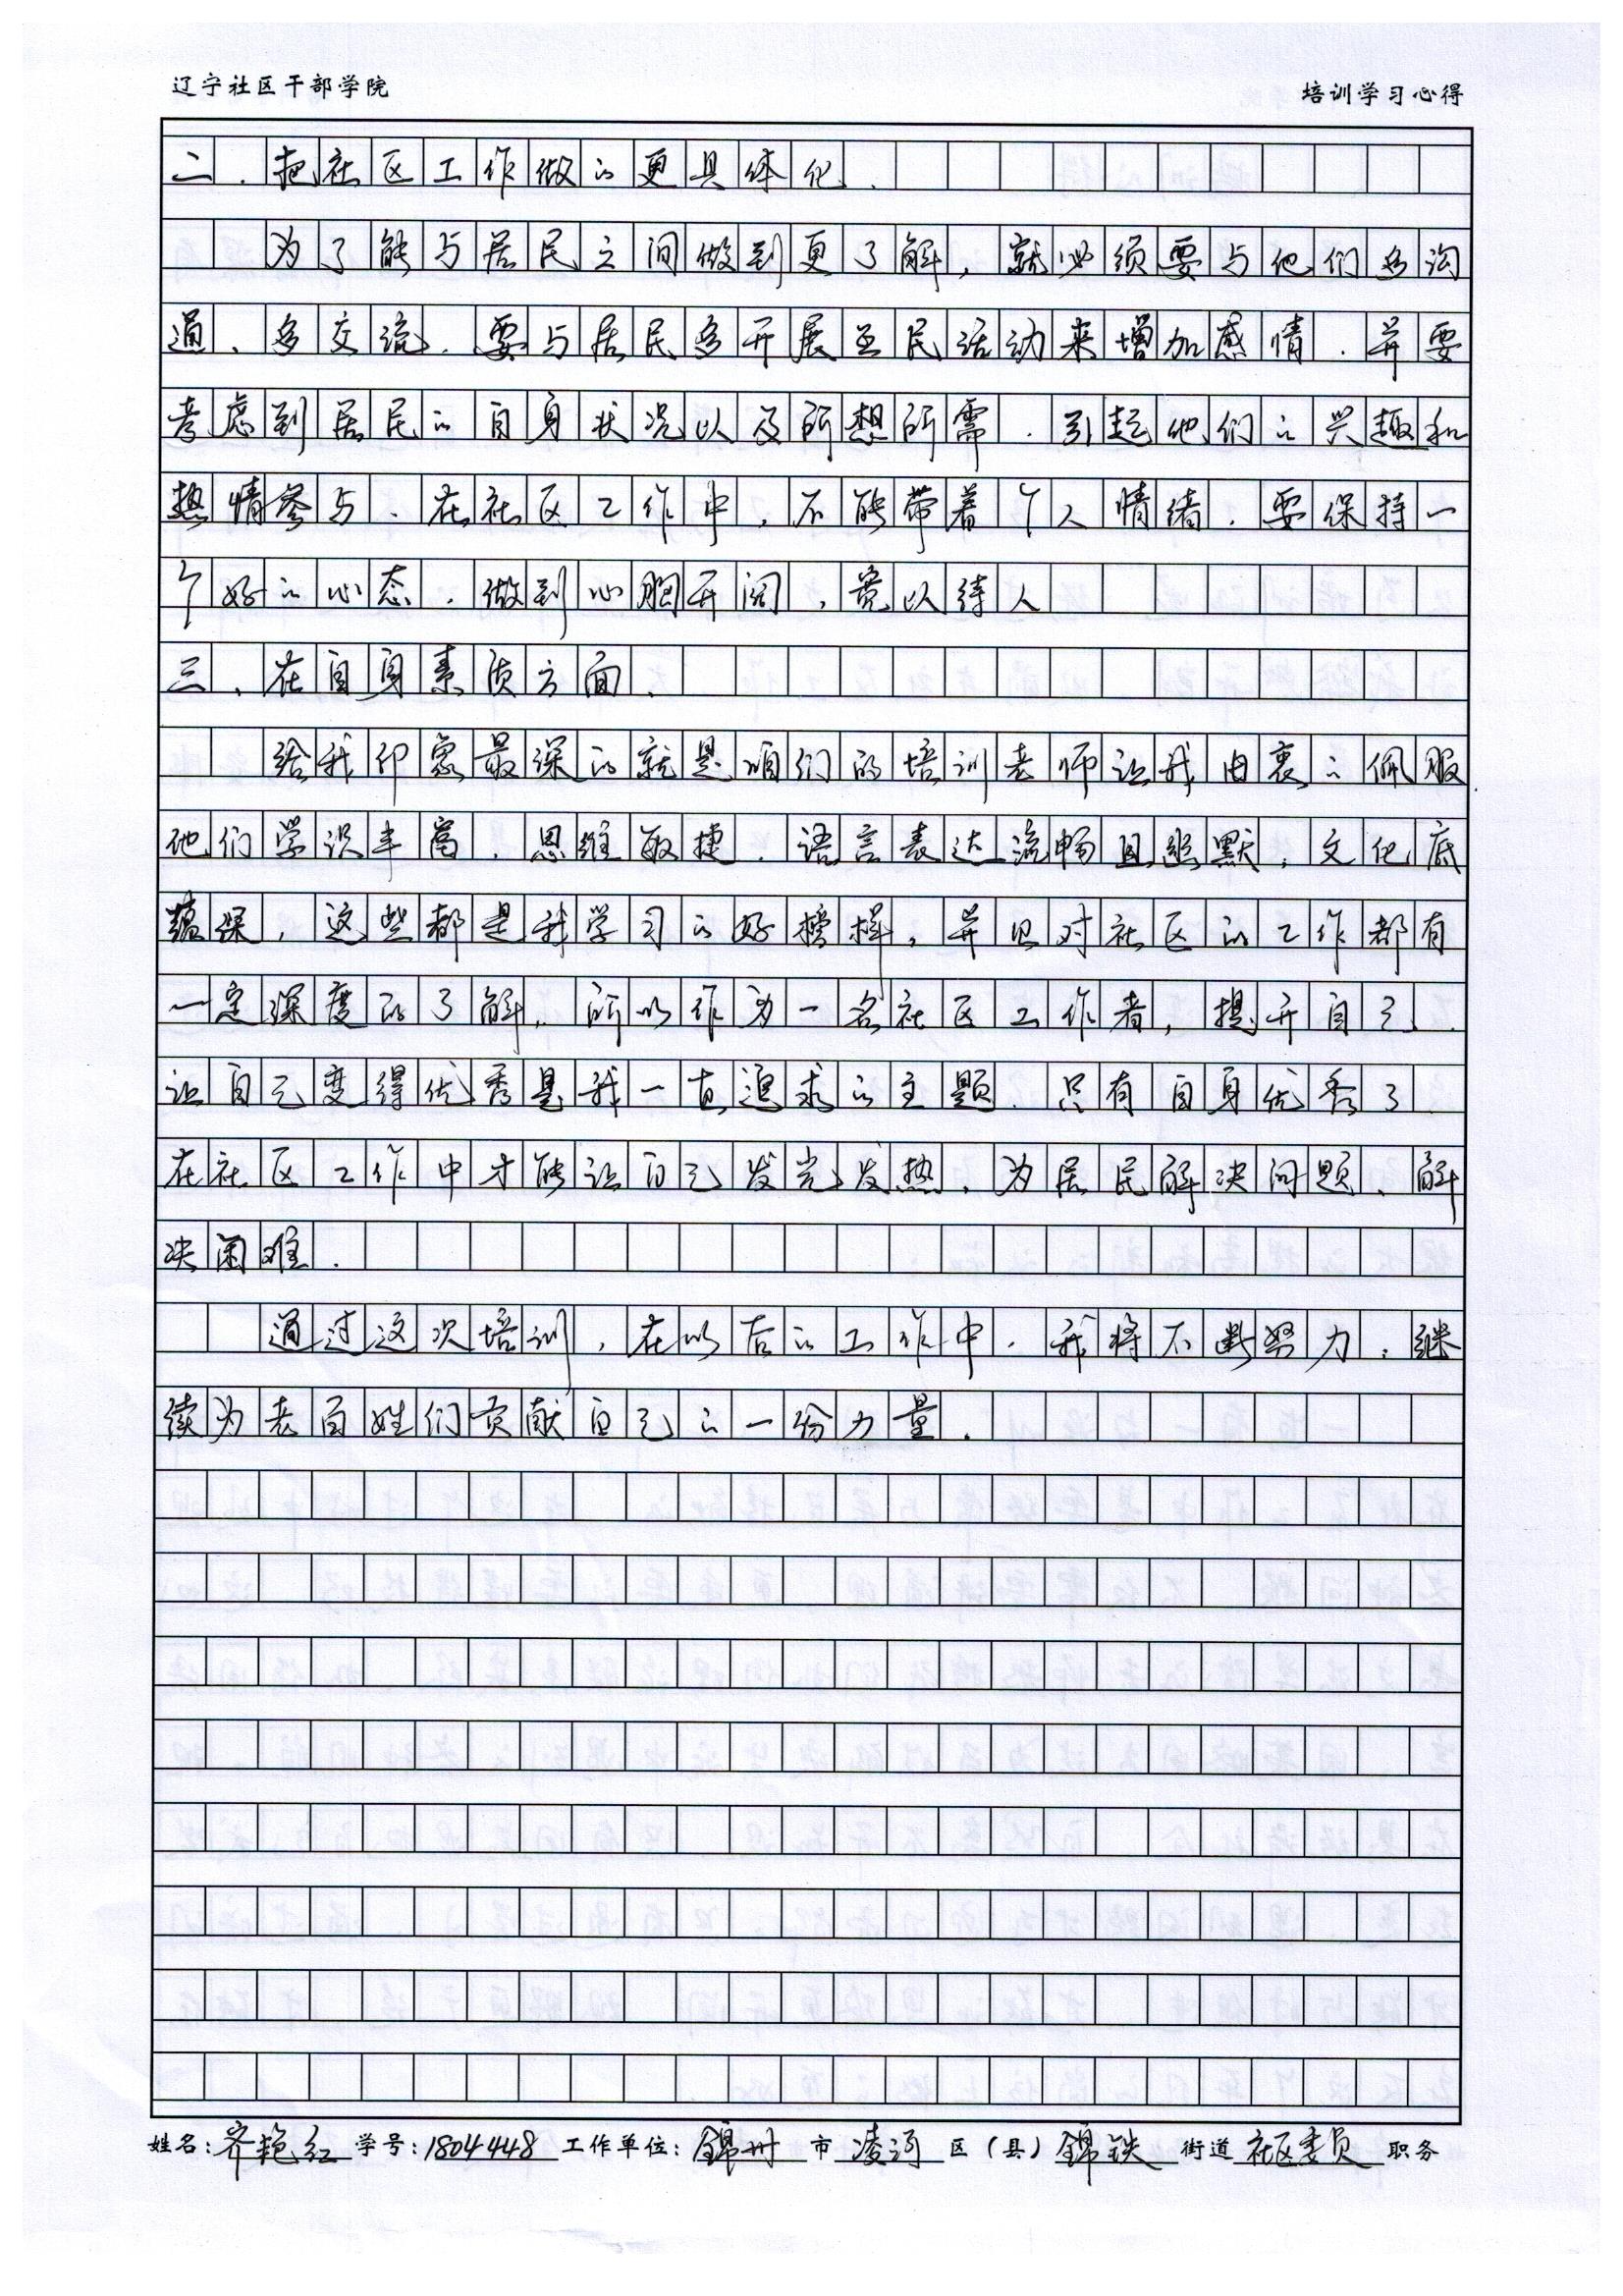 辽宁社区干部学院 培训学习心得
二、把社区工作做的更具体化、
为了能与居民之间做到更了解,就必须要与他们多沟
通、多交流、要与居民多开展至民活动来增加感情、并要
考虑到居民的自身状况以及所想所需、引起他们的兴趣和
热情参与、在社区工作中,不能带着个人情绪、要保持一
个好的心态、做到心胸开阔,宽以待人
三、在自身素质方面、
给我印象最深的就是咱们的培训老师让我由衷的佩服
他们学识丰富,思维敏捷、语言表达流畅且幽默,文化底
蕴深,这些都是我学习的好榜样,并且对社区的工作都有
一定深度的了解,所以作为一名社区工作者,提升自己、
让自己变得优秀是我一直追求的主题、只有自身优秀了
在社区工作中才能让自己发光发热、为居民解决问题、解
决困难.
通过这次培训,在以后的工作中、我将不断努力,继
续为老百姓们贡献自己的一份力量.
姓名:齐艳红 学号:1804448 工作单位:锦州 市 凌河 区(县)锦铁 街道 社区委员 职务